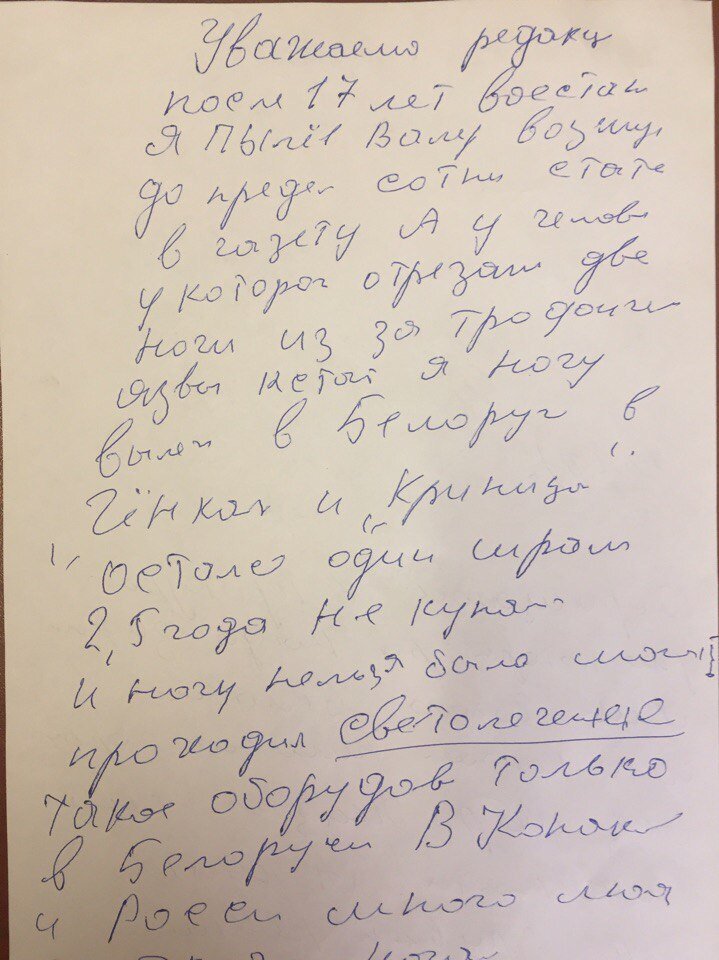 Уважаемо редакц
после 17 лет восстан
я Пылёв Валер возмущ
до предел сотни стате
в газету А у челове
у которог отрезали две
ноги из за трофичи
язвы кстат я ногу
вылеч в Белорус в
и "Криница"
остался один шрам
2,5 года не купал
и ногу нельзя было мочит
проходил светолечение
такое оборудов только
в Белорусси В Конако
и Росси много люд